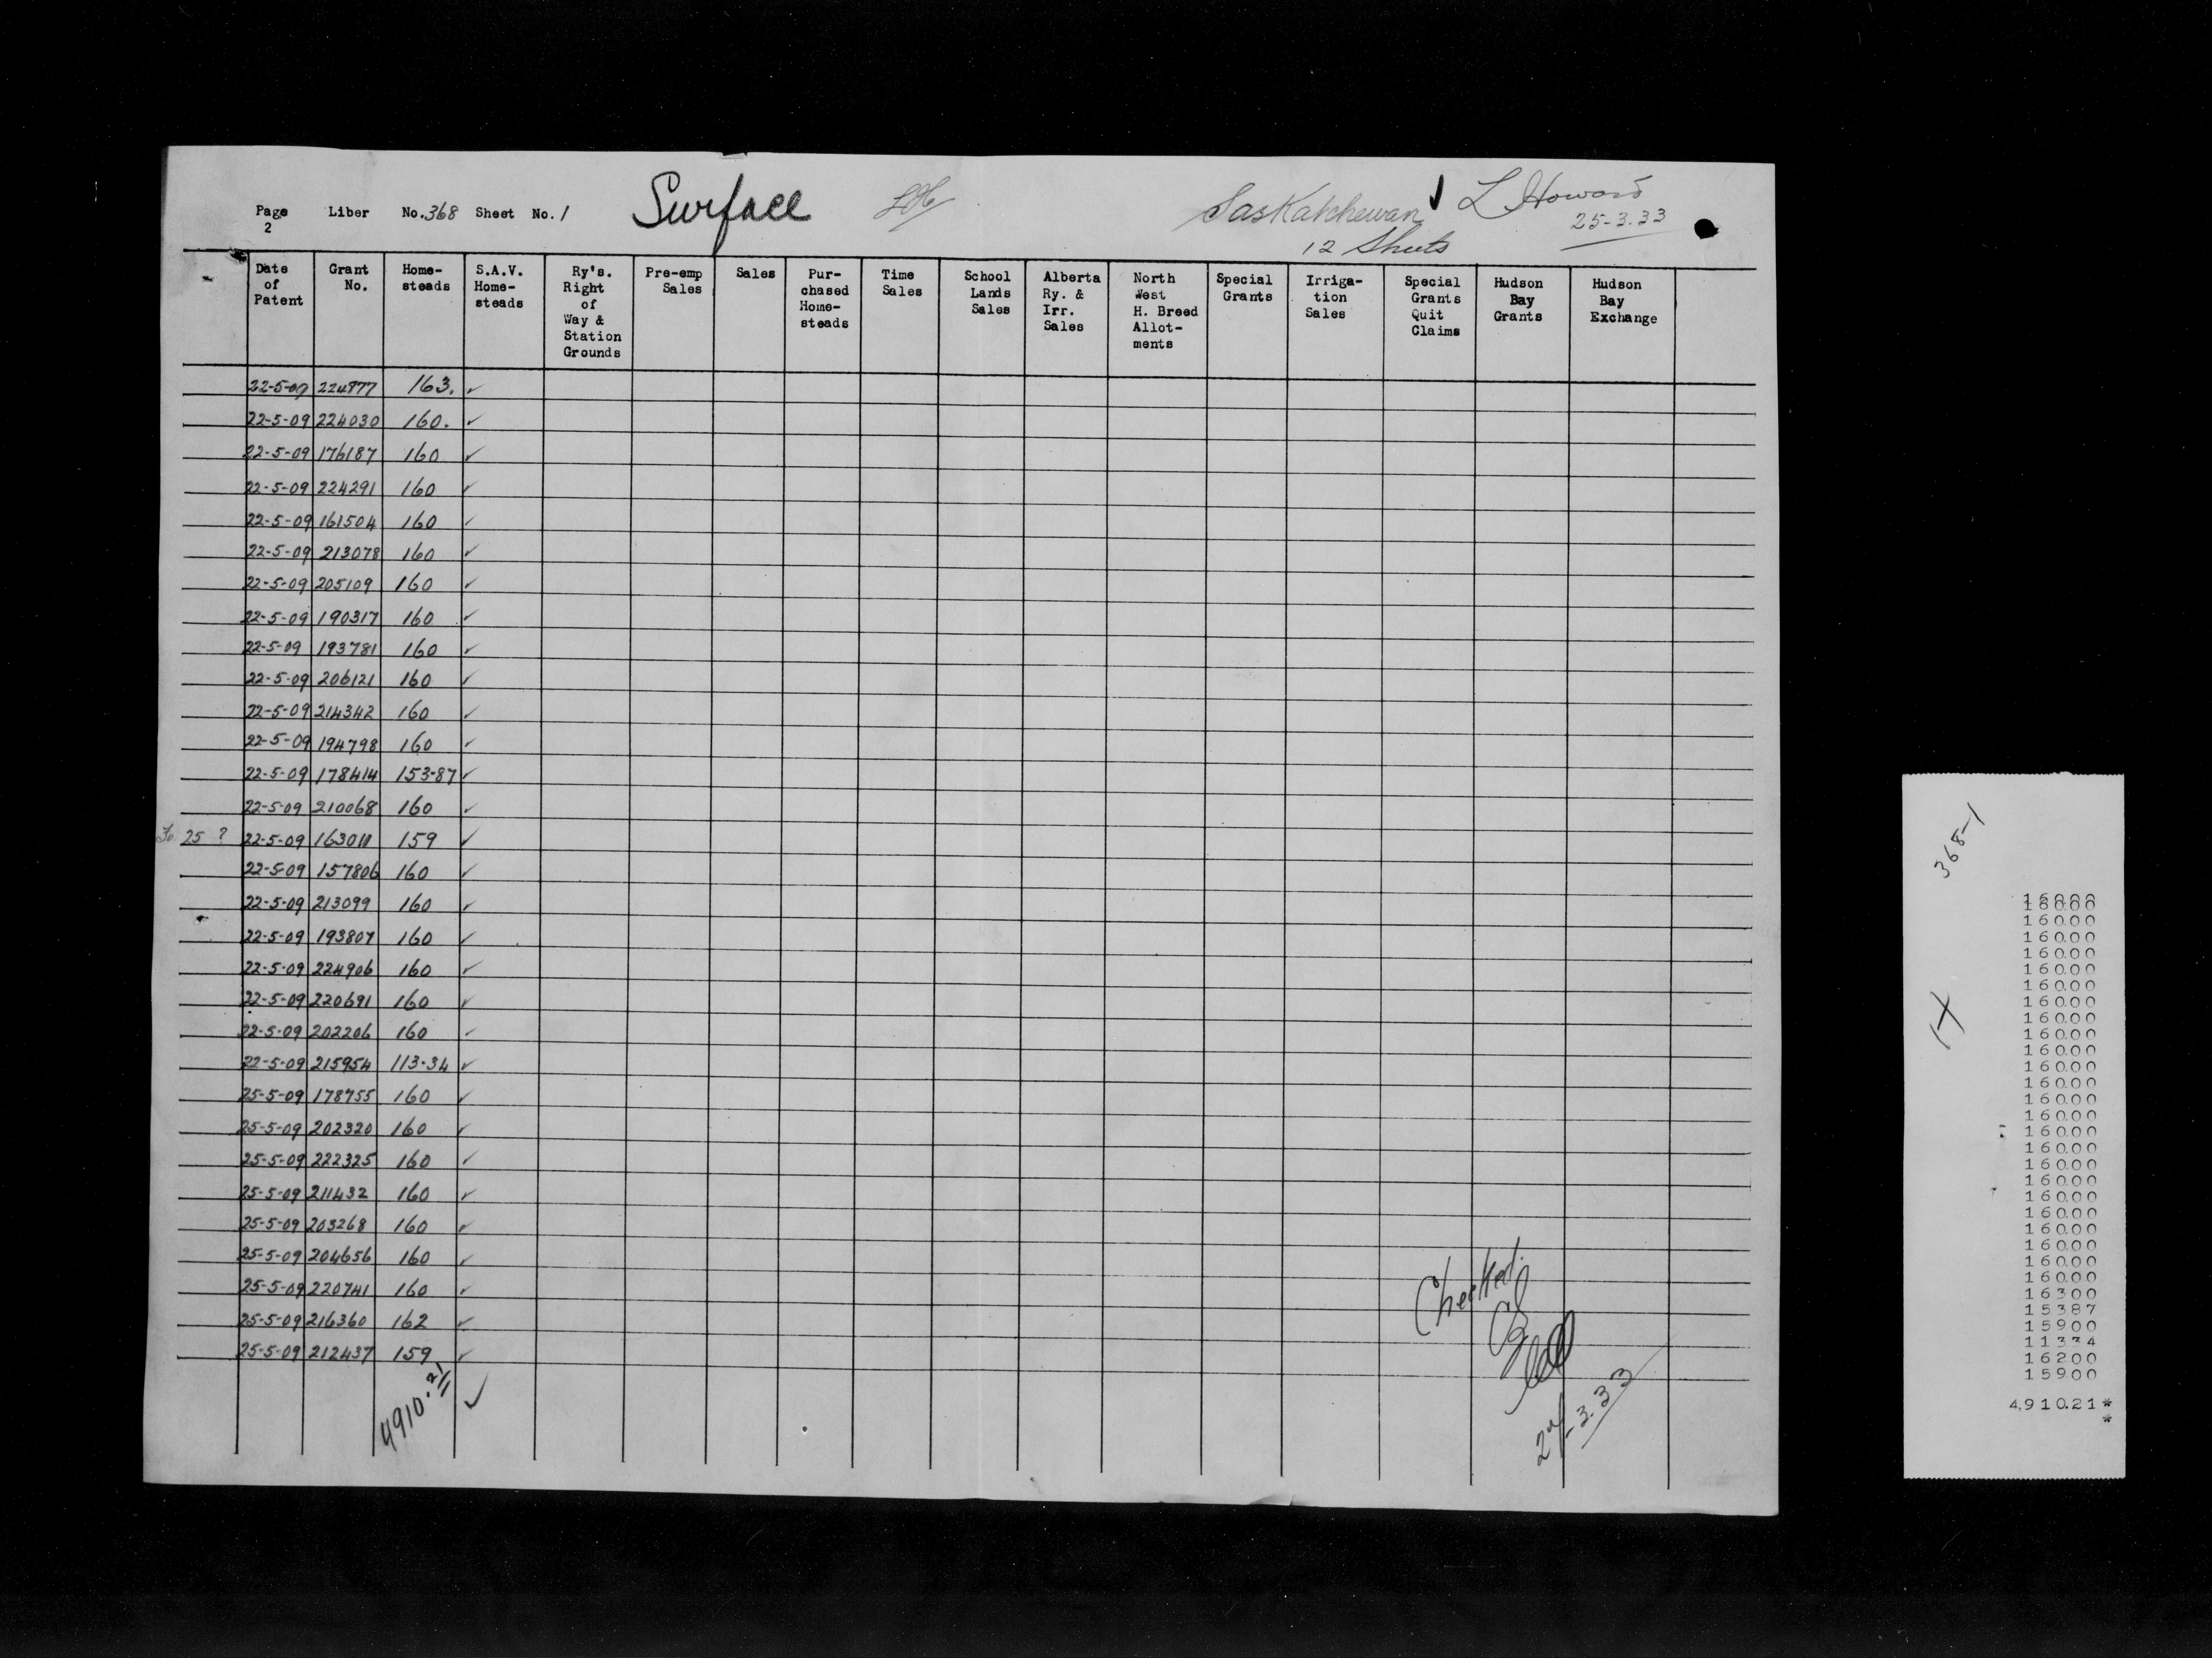 Page 2 Liber No. 368 Sheet No. 1 Surface LH Saskatchewan L Howard
25-3.33
12 Sheets
Date of Patent Grant No. Home-steads S.A.V. Home-steads Ry's. Right of Way & Station Grounds Pre-emp Sales Sales Pur-chased Home-steads Time Sales School Lands Sales Alberta Ry. & Irr. Sales North West H. Breed Allot-ments Special Grants Irriga-tion Sales Special Grants Quit Claims Hudson Bay Grants Hudson Bay Exchange
22-5-09 224877 163. ✓
22-5-09 224030 160. ✓
22-5-09 176187 160 ✓
22-5-09 224291 160 ✓
22-5-09 161504 160 ✓
22-5-09 213078 160 ✓
22-5-09 205109 160 ✓
22-5-09 190317 160 ✓
22-5-09 193781 160 ✓
22-5-09 206121 160 ✓
22-5-09 214342 160 ✓
22-5-09 194798 160 ✓
22-5-09 178414 153.87 ✓
22-5-09 210068 160 ✓
Fo. 25 ? 22-5-09 163011 159 ✓
22-5-09 157806 160 ✓
22-5-09 213099 160 ✓
22-5-09 193807 160 ✓
22-5-09 224906 160 ✓
22-5-09 220691 160 ✓
22-5-09 202206 160 ✓
22-5-09 215954 113.34 ✓
25-5-09 178755 160 ✓
25-5-09 202320 160 ✓
25-5-09 222325 160 ✓
25-5-09 211432 160 ✓
25-5-09 203268 160 ✓
25-5-09 204656 160 ✓
25-5-09 220741 160 ✓
25-5-09 216360 162 ✓
25-5-09 212437 159 ✓
4910.21 ✓
Checked.
27-3.33
368-1
160.00
160.00
160.00
160.00
160.00
160.00
160.00
160.00
160.00
160.00
160.00
160.00
160.00
160.00
160.00
160.00
160.00
160.00
160.00
160.00
160.00
160.00
160.00
160.00
160.00
163.00
153.87
159.00
113.34
162.00
159.00
4,910.21*
*